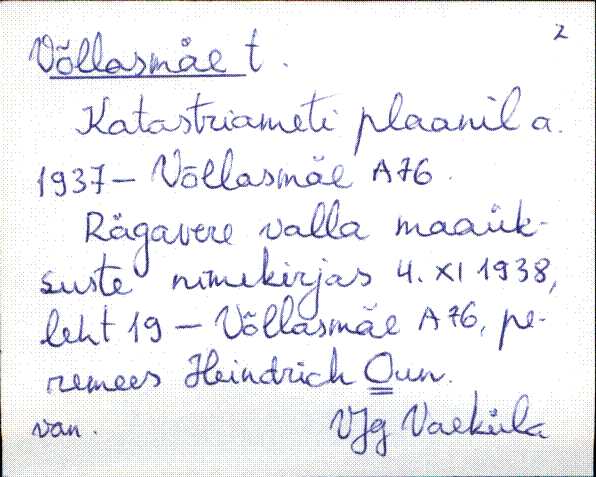 2
Võllasmäe t.
Katastriameti plaanil a.
1937 – Võllasmäe A76.
Rägavere valla maaük-
suste nimekirjas 4. XI 1938,
leht 19 – Võllasmäe A76, pe-
remees Heindrich Oun.
van. VJg Vaeküla